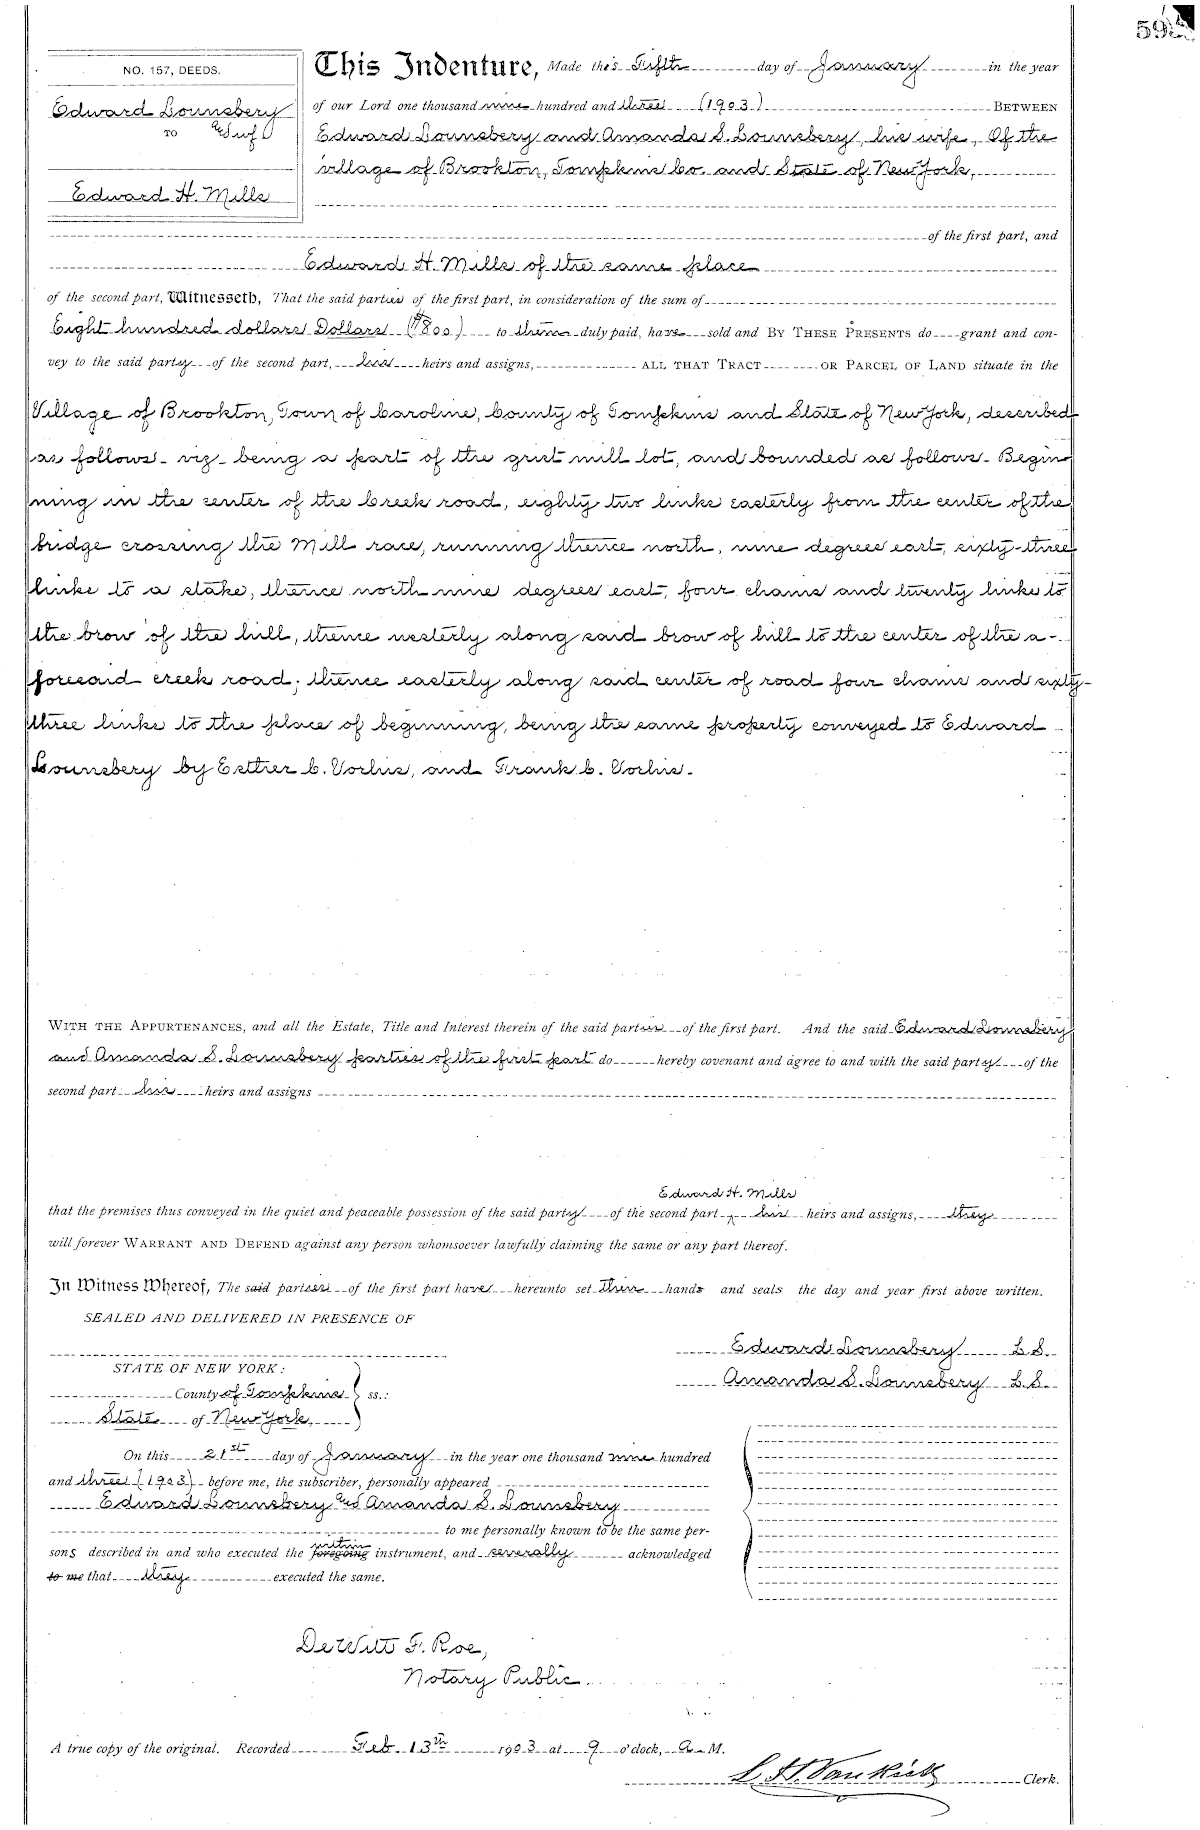 59
NO. 157, DEEDS.
Edward Lounsbery
TO & wf
Edward H. Mills
This Indenture, Made this Fifth day of January in the year
of our Lord one thousand nine hundred and three (1903) BETWEEN
Edward Lounsbery and Amanda S. Lounsbery, his wife, Of the
village of Brookton, Tompkins Co. and State of New York,
of the first part, and
Edward H. Mills of the same place
of the second part, Witnesseth, That the said parties of the first part, in consideration of the sum of
Eight hundred dollars Dollars ($800) to them duly paid, have sold and BY THESE PRESENTS do grant and con-
vey to the said party of the second part, his heirs and assigns, ALL THAT TRACT OR PARCEL OF LAND situate in the
Village of Brookton, Town of Caroline, County of Tompkins and State of New York, described
as follows - viz - being a part of the grist mill lot, and bounded as follows - Begin
ning in the center of the Creek road, eighty two links easterly from the center of the
bridge crossing the Mill race, running thence north, nine degrees east, sixty-three
links to a stake, thence north nine degrees east, four chains and twenty links to
the brow of the hill, thence westerly along said brow of hill to the center of the a-
foresaid creek road; thence easterly along said center of road four chains and sixty-
three links to the place of beginning, being the same property conveyed to Edward
Lounsbery by Esther C. Vorhis, and Frank C. Vorhis.
WITH THE APPURTENANCES, and all the Estate, Title and Interest therein of the said parties of the first part. And the said Edward Lounsbery
and Amanda S. Lounsbery parties of the first part do hereby covenant and agree to and with the said party of the
second part his heirs and assigns
Edward H. Mills
that the premises thus conveyed in the quiet and peaceable possession of the said party of the second part ^ his heirs and assigns, they
will forever WARRANT AND DEFEND against any person whomsoever lawfully claiming the same or any part thereof.
In Witness Whereof, The said parties of the first part have hereunto set their hands and seals the day and year first above written.
SEALED AND DELIVERED IN PRESENCE OF
Edward Lounsbery L.S.
Amanda S. Lounsbery L.S.
STATE OF NEW YORK:
County of Tompkins ss.:
State of New York,
On this 21st day of January in the year one thousand nine hundred
and three (1903) before me, the subscriber, personally appeared
Edward Lounsbery and Amanda S. Lounsbery
to me personally known to be the same per-
sons described in and who executed the foregoing within instrument, and severally acknowledged
to me that they executed the same.
DeWitt F. Roe,
Notary Public.
A true copy of the original. Recorded Feb. 13th 1903 at 9 o'clock, A M.
L H. VanKirk Clerk.